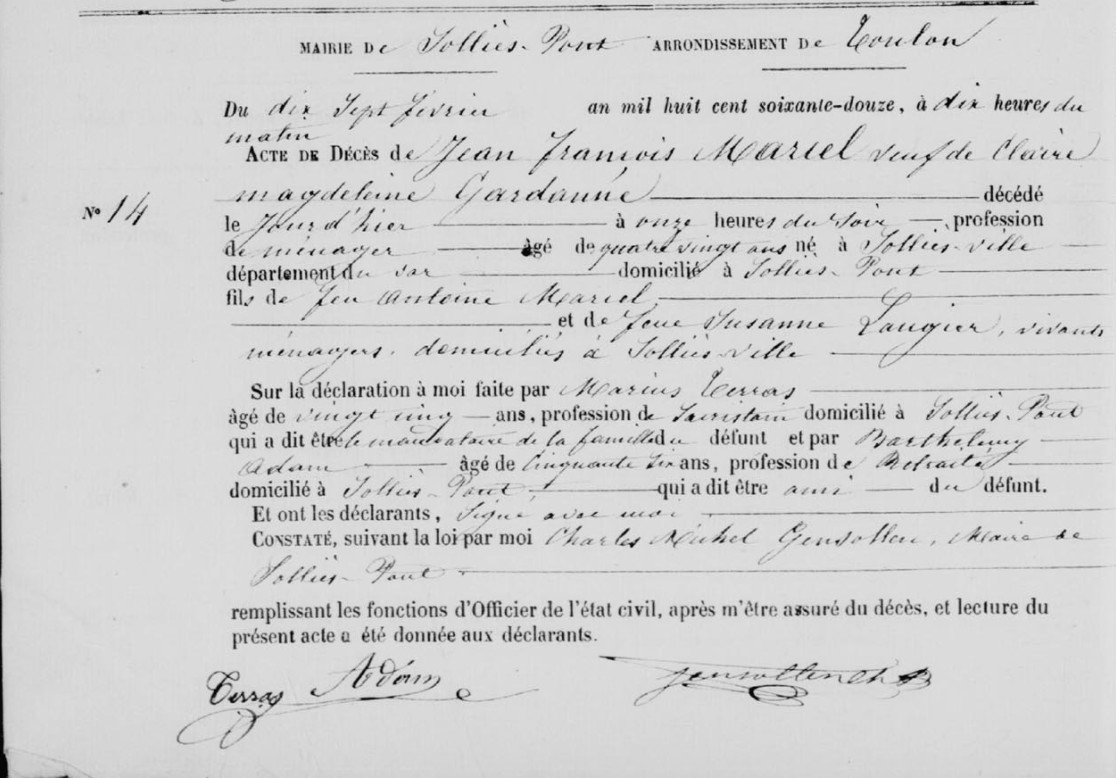 MAIRIE De Solliès-Pont ARRONDISSEMENT De Toulon
Du dix Sept février an mil huit cent soixante-douze, à dix heures du
matin
ACTE DE DÉCÈS de Jean François Martel veuf de Claire
magdeleine Gardanne décédé
N° 14
le Jour d'hier à onze heures du Soir profession
de ménager âgé de quatre vingt ans né à Solliès-ville
département du var domicilié à Solliès-Pont
fils de feu Antoine Martel
et de feue Susanne Laugier, vivants
ménagers, domiciliés à Solliès-ville
Sur la déclaration à moi faite par Marius Terras
âgé de vingt cinq ans, profession de Sacristain domicilié à Solliès-Pont
qui a dit être le mandataire de la famille du défunt et par Barthelemy
Adam âgé de Cinquante six ans, profession de Retraité
domicilié à Solliès-Pont qui a dit être ami du défunt.
Et ont les déclarants, Signé avec moi
CONSTATÉ, suivant la loi par moi Charles Michel Gensollen, Maire de
Solliès-Pont
remplissant les fonctions d'Officier de l'état civil, après m'être assuré du décès, et lecture du
présent acte a été donnée aux déclarants.
Terras Adam Gensollen Ch